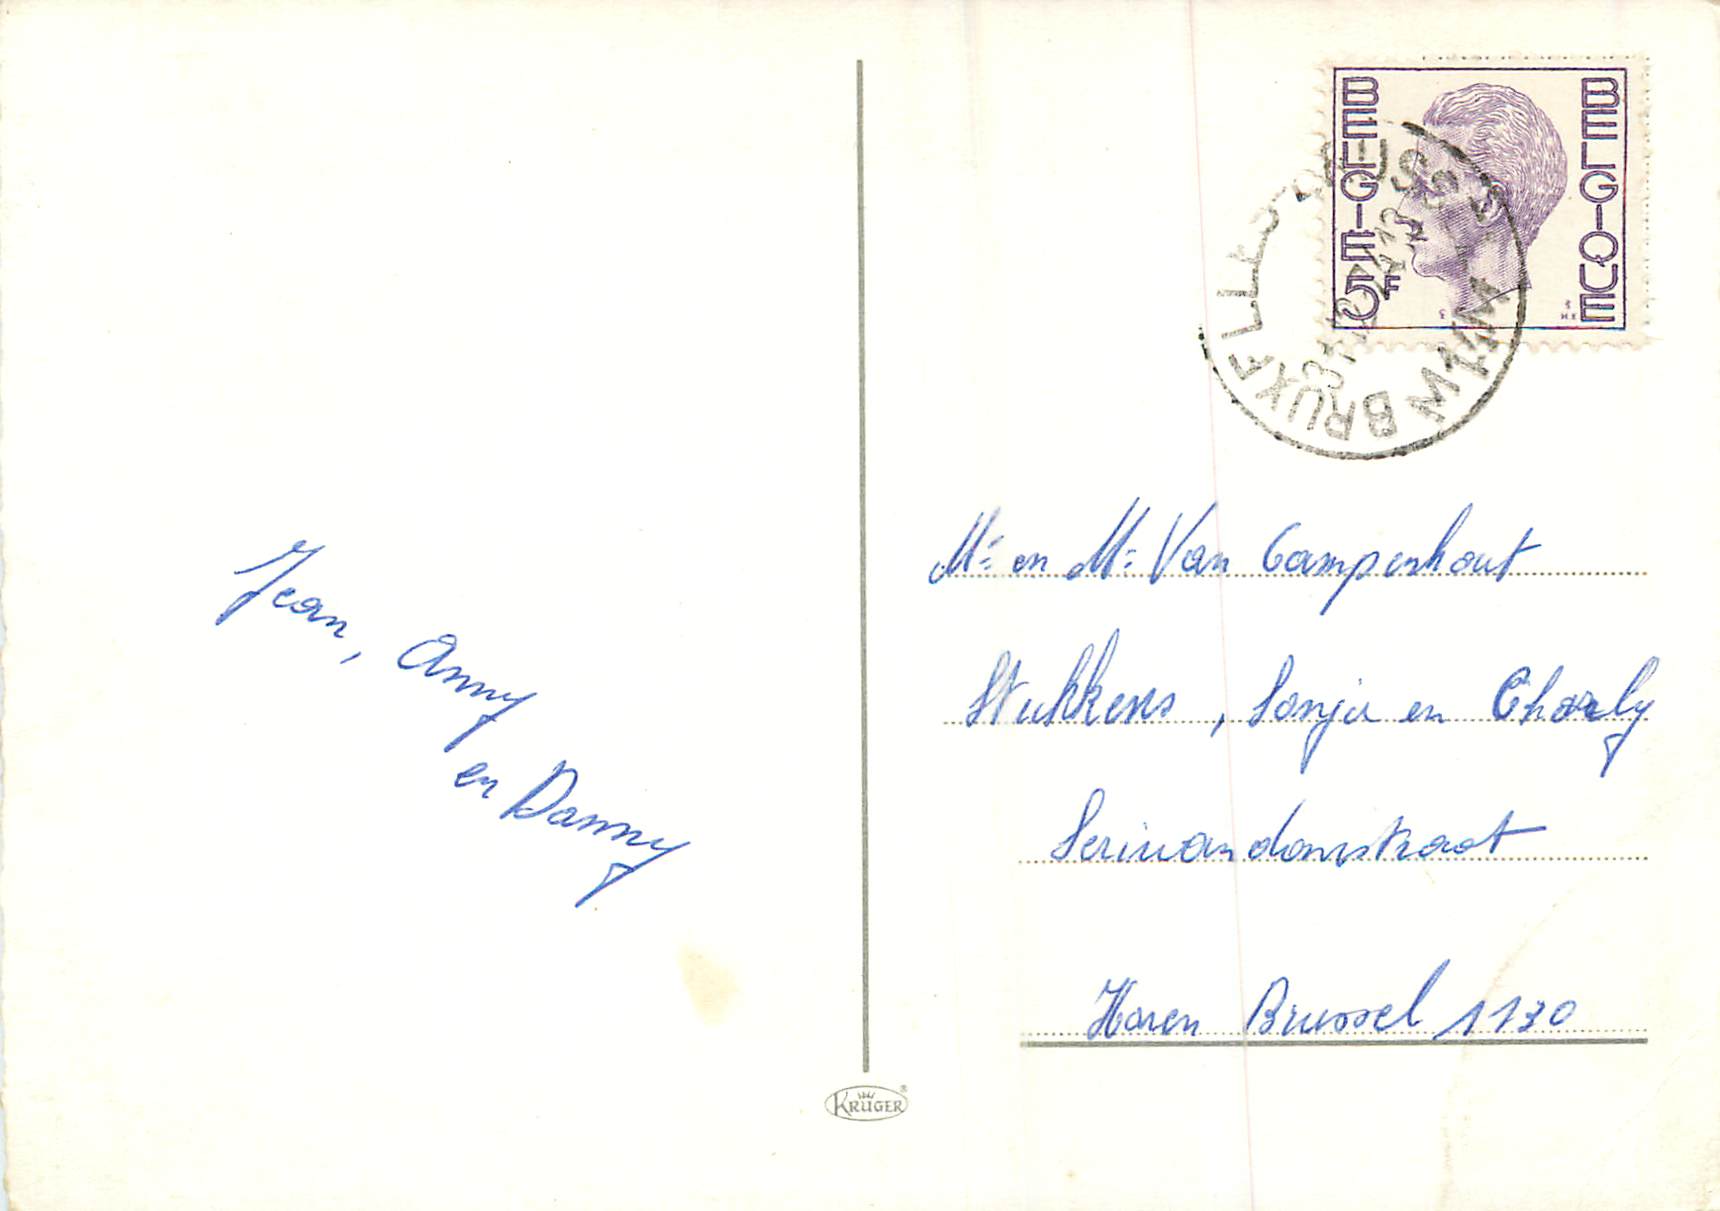 Jean,
Anny
en Danny
KRÜGER
BELGIE 5F
BELGIQUE
BRUXELLES
Mr en Mr Van Campenhout
Stukkens, Sonja en Charly
Haren Brussel 1130